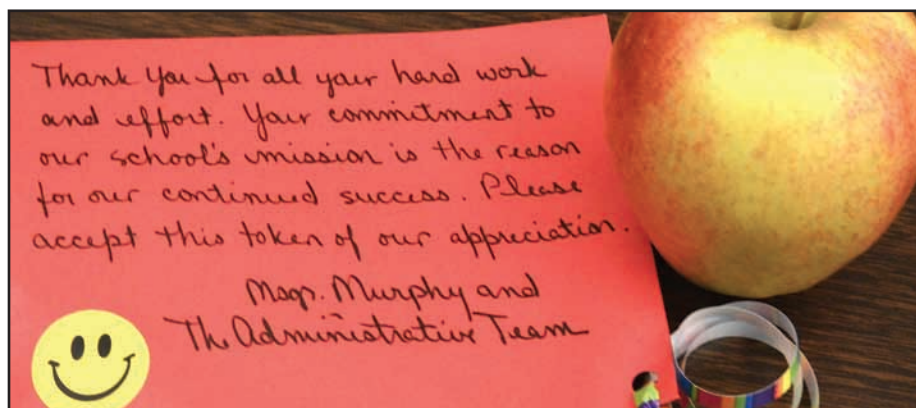 Thank you for all your hard work
and effort. Your commitment to
our school's mission is the reason
for our continued success. Please
accept this token of our appreciation.
Msgr. Murphy and
The Administrative Team